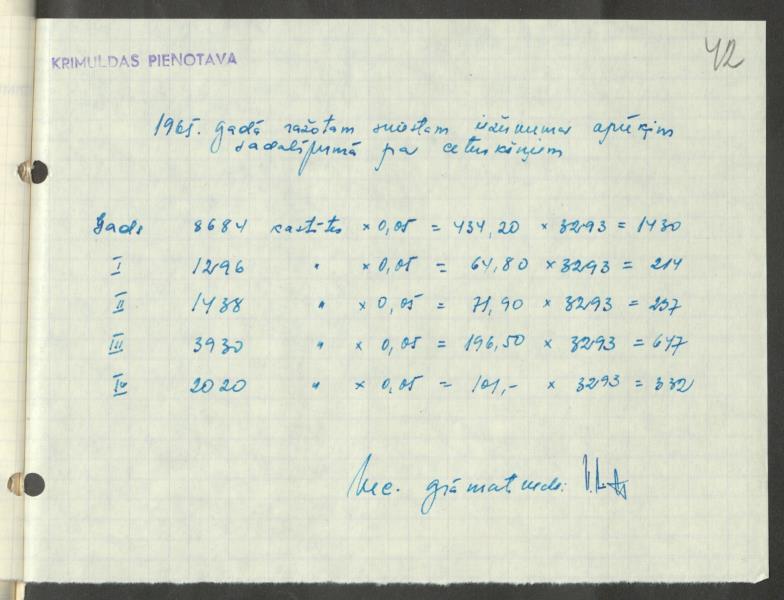 42
KRIMULDAS PIENOTAVA
1965. gadā ražotam sviestam izdevumu aprēķins
sadalījumā pa ceturkšņiem
Gads 8684 kastītes × 0,05 = 434,20 × 3293 = 1430
I 1296 " × 0,05 = 64,80 × 3293 = 214
II 1438 " × 0,05 = 71,90 × 3293 = 237
III 3930 " × 0,05 = 196,50 × 3293 = 647
IV 2020 " × 0,05 = 101,- × 3293 = 332
Vec. grāmatvedis: